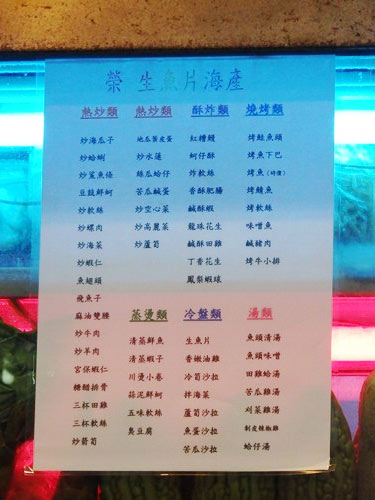 榮生魚片海產
熱炒類
炒海瓜子
炒蛤蜊
炒鯊魚條
豆鼓鮮蚵
炒軟絲
炒螺肉
炒海菜
炒蝦仁
魚翅頭
飛魚子
麻油雙腰
炒牛肉
炒羊肉
宮保蝦仁
糖醋排骨
三杯田雞
三杯軟絲
炒箭筍
熱炒類
地瓜葉皮蛋
炒水蓮
絲瓜蛤仔
苦瓜鹹蛋
炒空心菜
炒高麗菜
炒蘆筍
酥炸類
紅糟鰻
蚵仔酥
炸軟絲
香酥肥腸
鹹酥蝦
龍珠花生
鹹酥田雞
丁香花生
鳳梨蝦球
燒烤類
烤鮭魚頭
烤魚下巴
烤魚(時價)
烤鯖魚
烤軟絲
味噌魚
鹹豬肉
烤牛小排
蒸燙類
清蒸鮮魚
清蒸蝦子
川燙小卷
蒜泥鮮蚵
五味軟絲
臭豆腐
冷盤類
生魚片
香嫩油雞
冷筍沙拉
拌海菜
蘆筍沙拉
魚蛋沙拉
苦瓜沙拉
湯類
魚頭清湯
魚頭味噌
田雞蛤湯
苦瓜雞湯
刈菜雞湯
剝皮辣椒雞
蛤仔湯